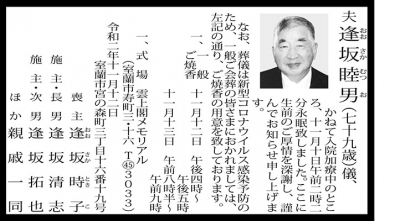 夫 逢坂睦男(七十九歳)儀、
おおさかむつお
かねて入院加療中のとこ
ろ、十一月十日午前二時二
分永眠致しました。ここに
生前のご厚情を深謝し、謹
んでお知らせ申し上げま
す。
なお、葬儀は新型コロナウイルス感染予防の
ため、一般ご会葬の皆さまにおかれましては、
左記の通り、ご焼香の用意を致しております。
一、一般
ご焼香
十一月十二日 午後四時〜
午後五時
十一月十三日 午前八時半〜
午前九時
一、式場 雲上閣メモリアル
(室蘭市寿町三・十六 T㊺3033)
令和二年十一月十一日
室蘭市宮の森町三丁目十六番十九号
喪主 逢坂時子
施主・長男 逢坂清志
施主・次男 逢坂拓也
ほか親戚一同